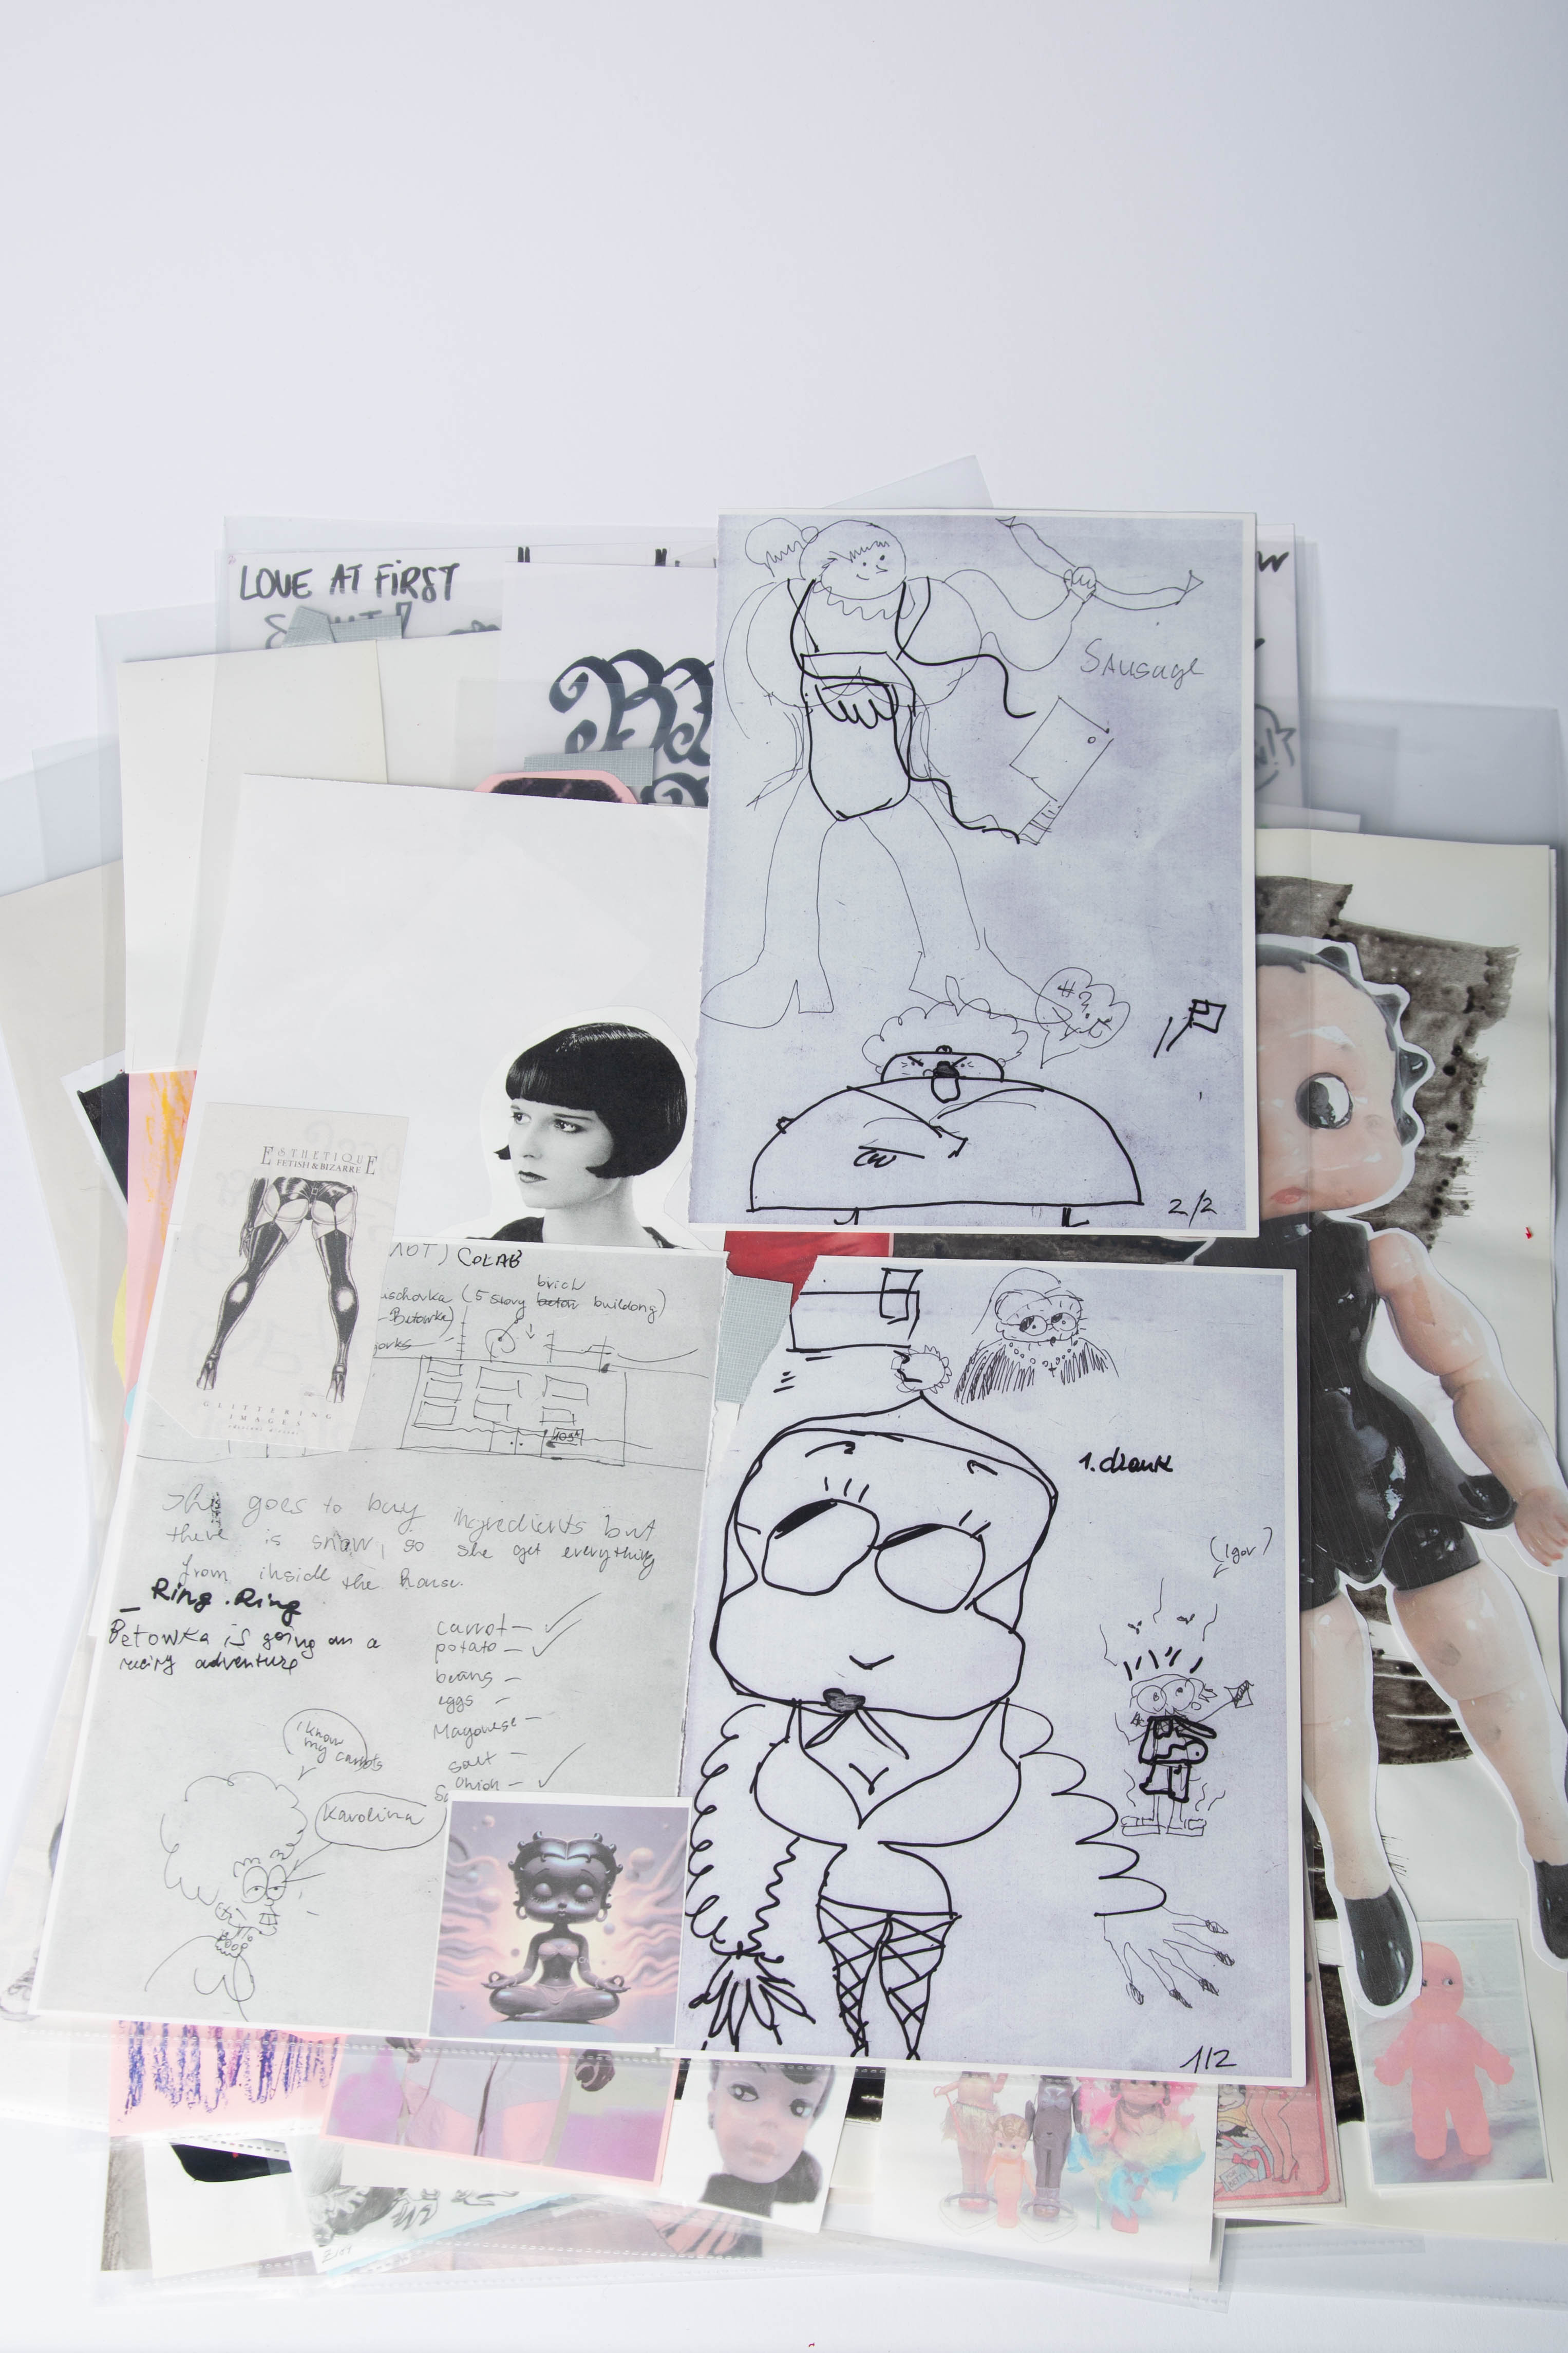 LOVE AT FiRST
Sausage
#?
2/2
ESTHETIQUE
FETISH & BIZARRE
GLITTERING
IMAGES
COLAB
brick
(5 story beton building)
-Betowka)
She goes to buy ingredients but
there is snow, so she get everything
from inside the house.
Ring.Ring
Betowka is going on a
adventure
carrot –
potato –
beans –
eggs –
Mayonese –
salt –
Onion –
I know
my carrots
Karolina
1. drank
(Igor)
1/2